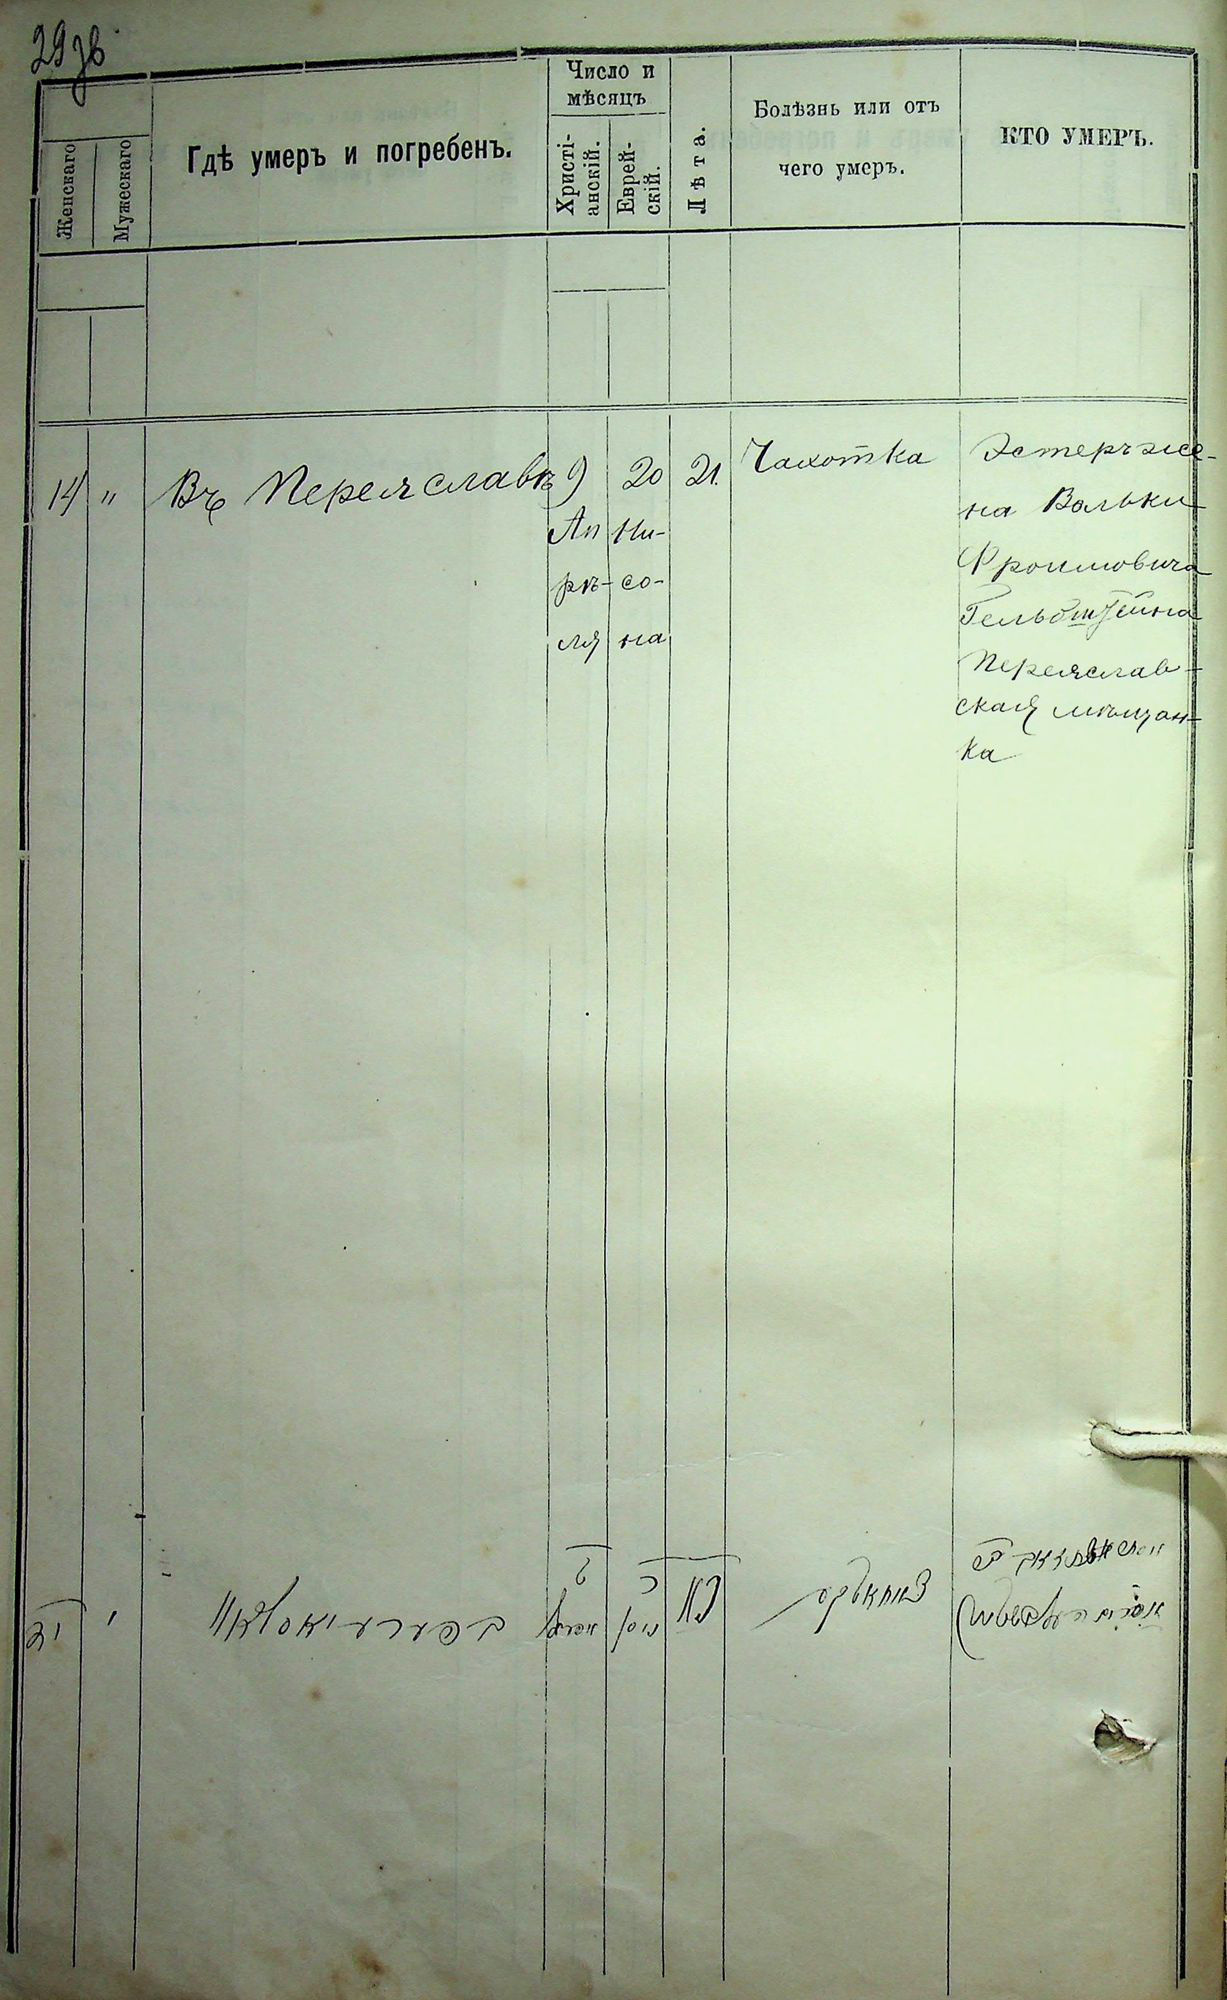 29 зв
Женскаго
Мужескаго
Гдѣ умеръ и погребенъ.
Число и
мѣсяцъ
Христі-
анскій.
Еврей-
скій.
Лѣта.
Болѣзнь или отъ
чего умеръ.
КТО УМЕРЪ.
14
"
Въ Переяславѣ
9
Ап
рѣ-
ля
20
Ни-
со-
на
21.
Чахотка
Эстеръ же-
на Вольки
Фроимовича
Гельбштейна
Переяслав-
ская мѣщан-
ка
יד
"
ט
אפריל
כ
ניסן
כא